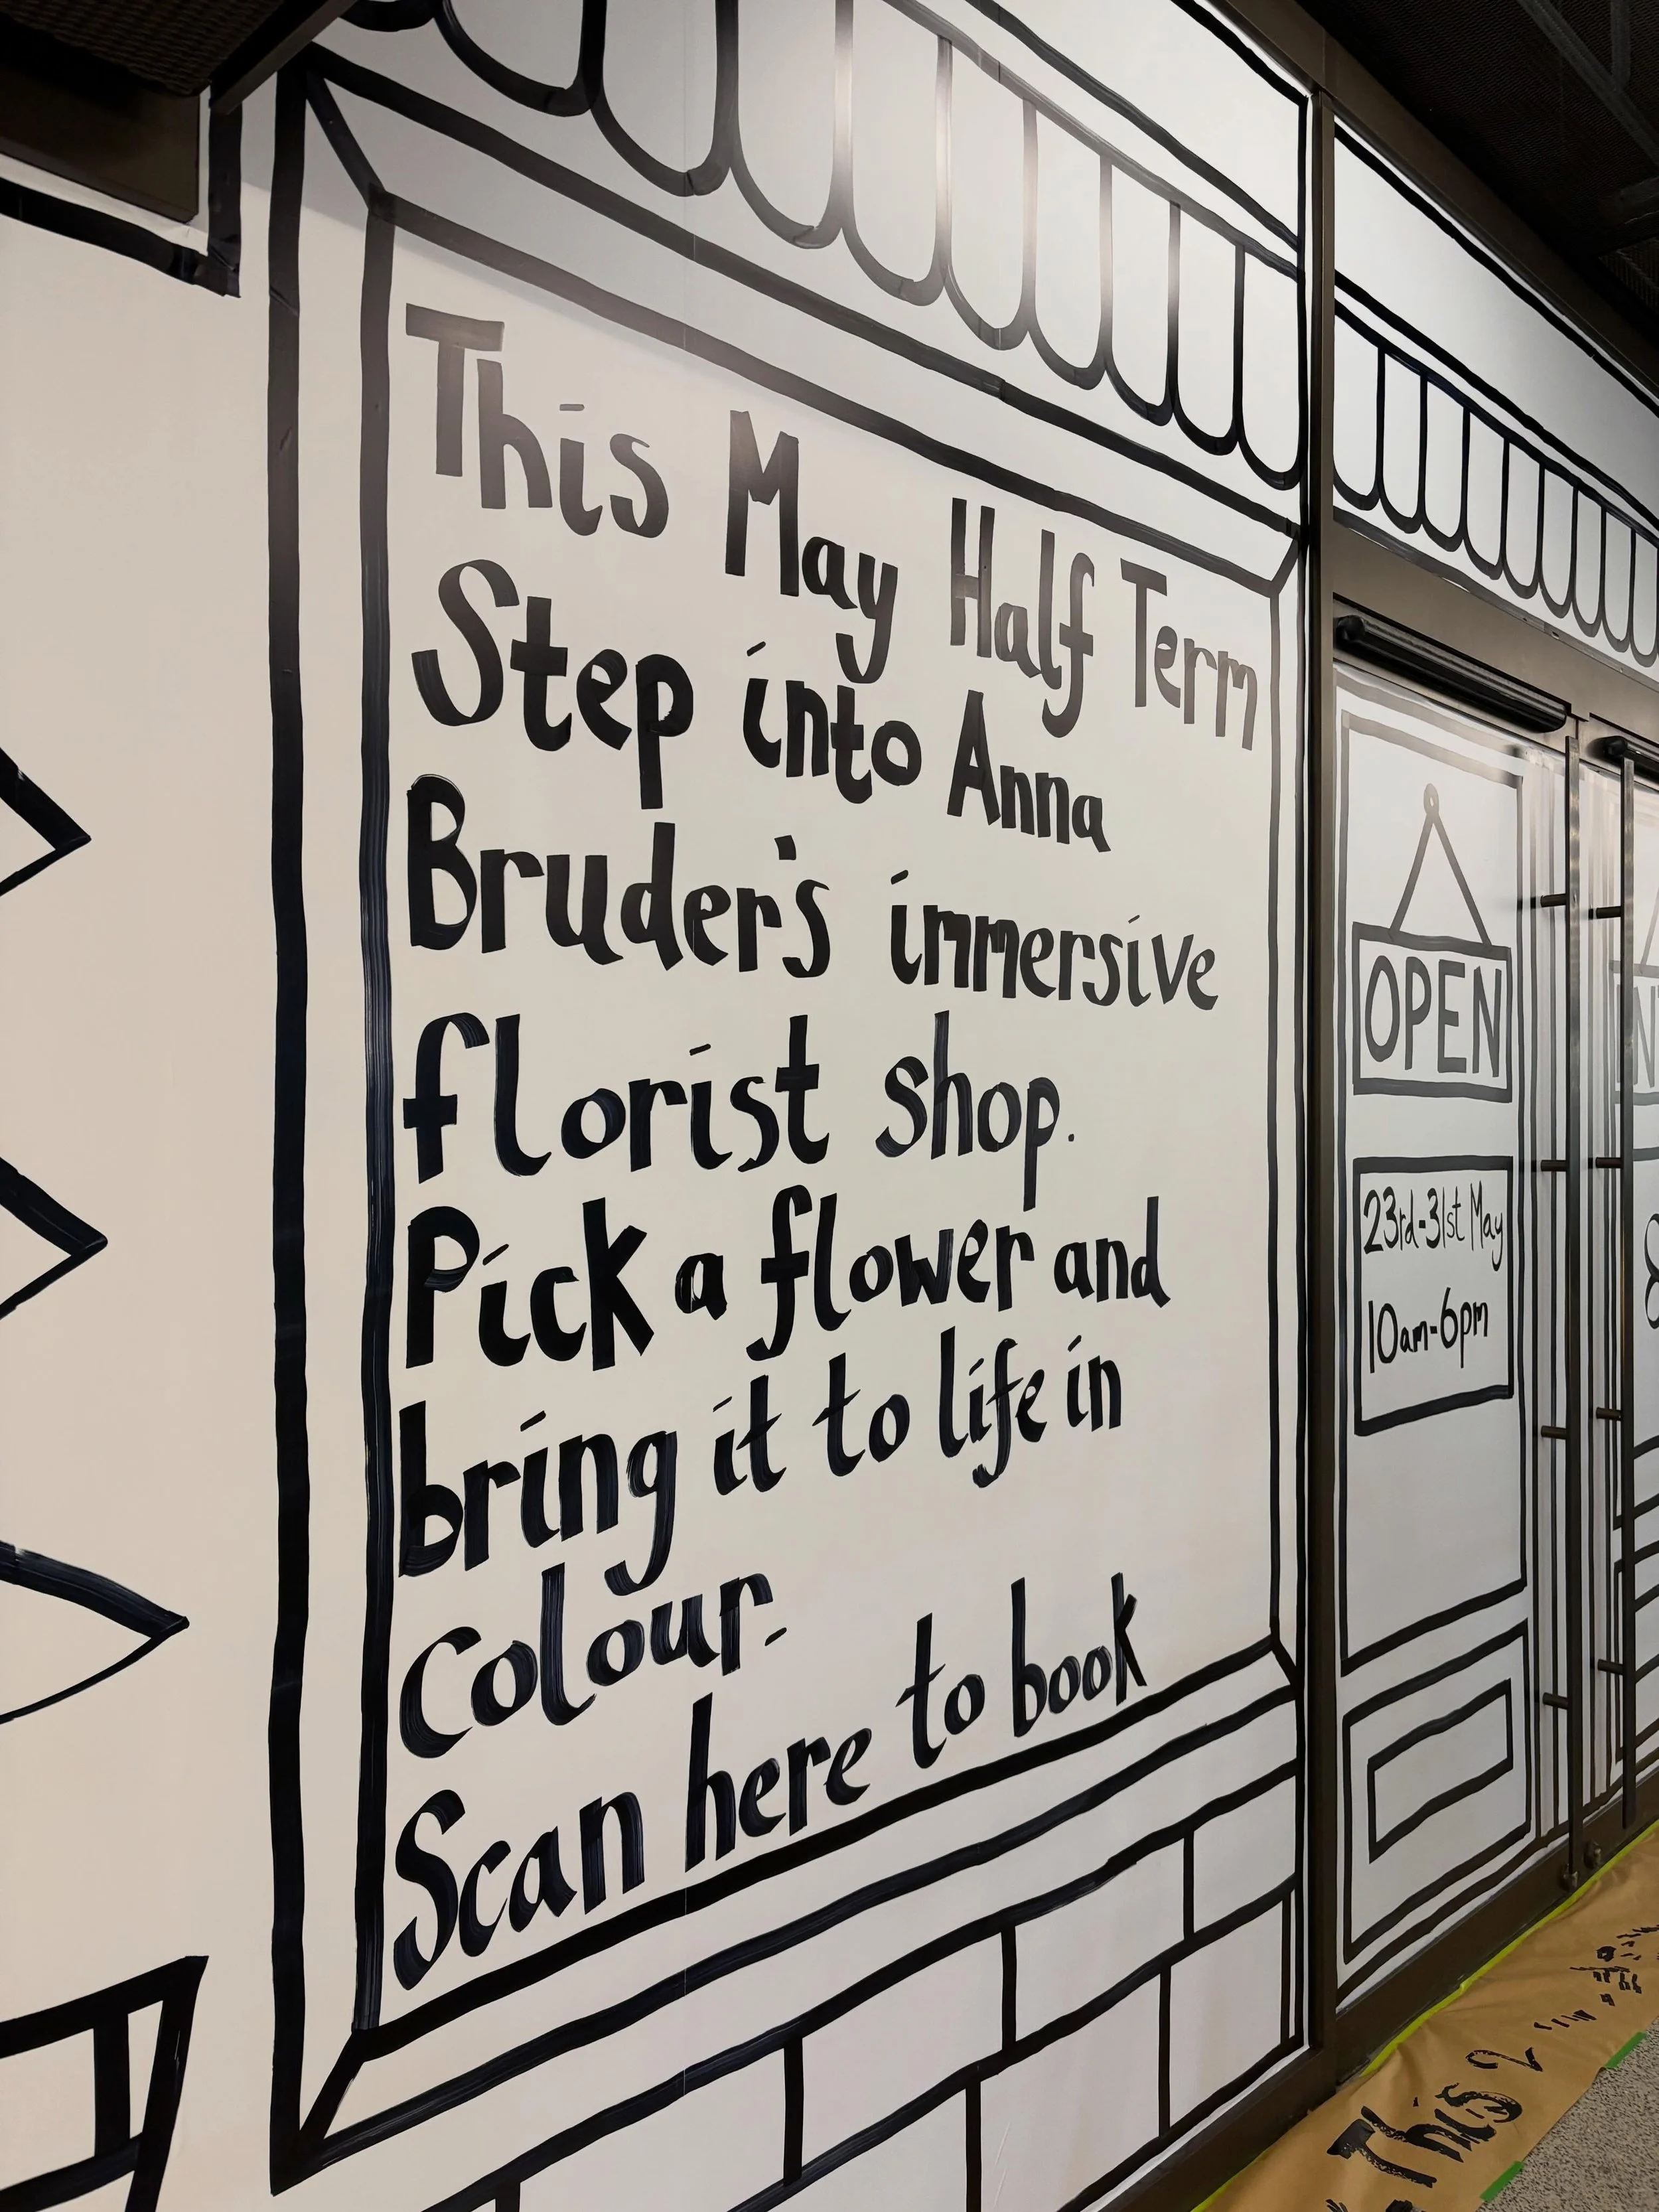 This May Half Term
Step into Anna
Bruder's immersive
florist shop.
Pick a flower and
bring it to life in
Colour.
Scan here to book
OPEN
23rd-31st May
10am-6pm
This